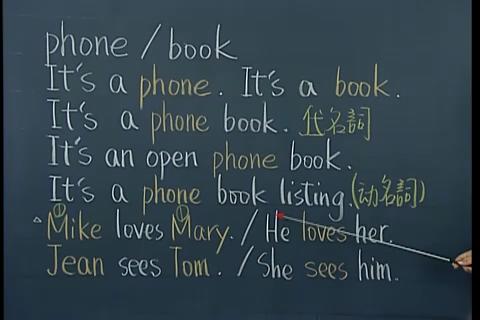 phone / book
It's a phone. It's a book.
It's a phone book. 代名詞
It's an open phone book.
It's a phone book listing. (动名詞)
Mike loves Mary. / He loves her.
Jean sees Tom. / She sees him.